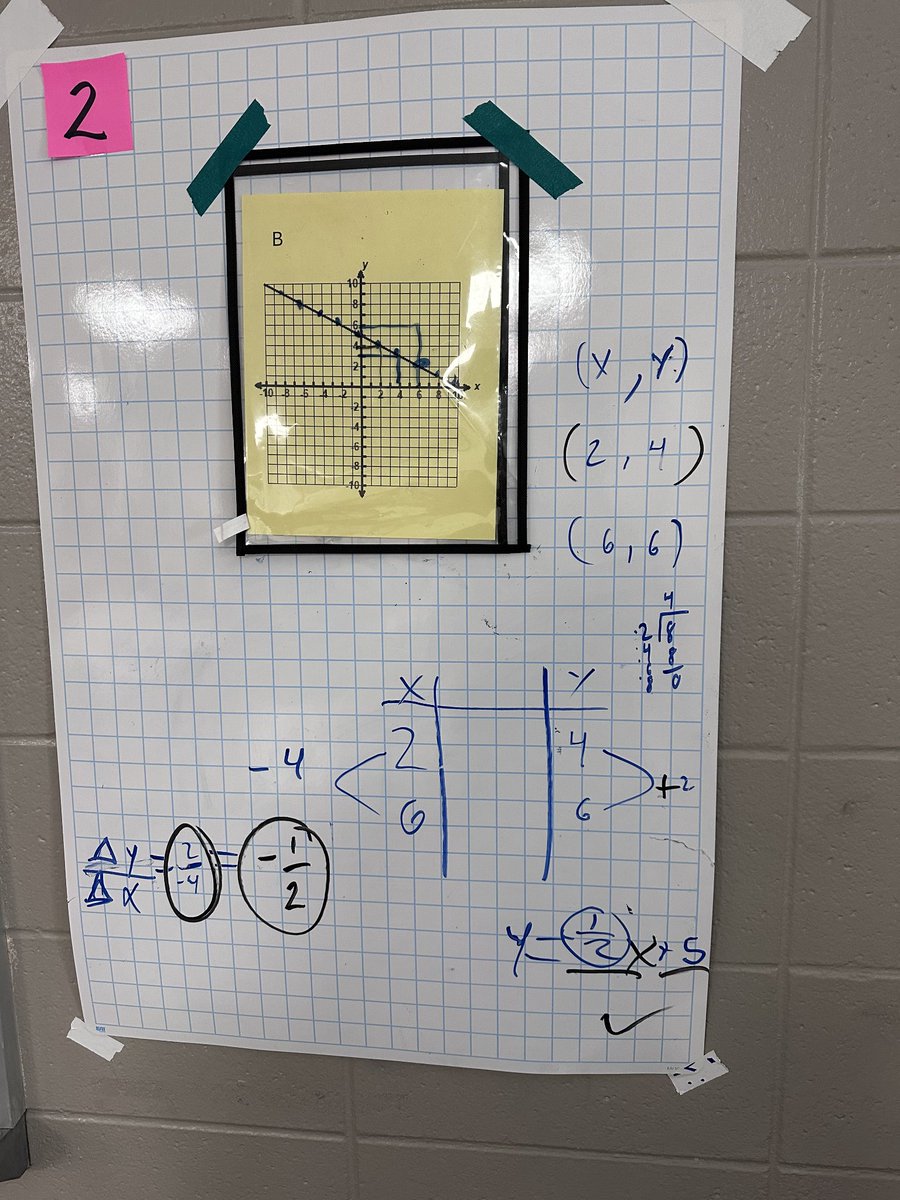 2
B
y
10
8
6
4
2
-10 -8 -6 -4 -2 2 4 6 8 10 x
-2
-4
-6
-8
-10
(X, Y)
(2, 4)
(6, 6)
4
2 8
4 8
6 0
8
X Y
2 4
-4 +2
6 6
Δy/Δx = 2/-4 = -1/2
y = -1/2 x + 5
✓